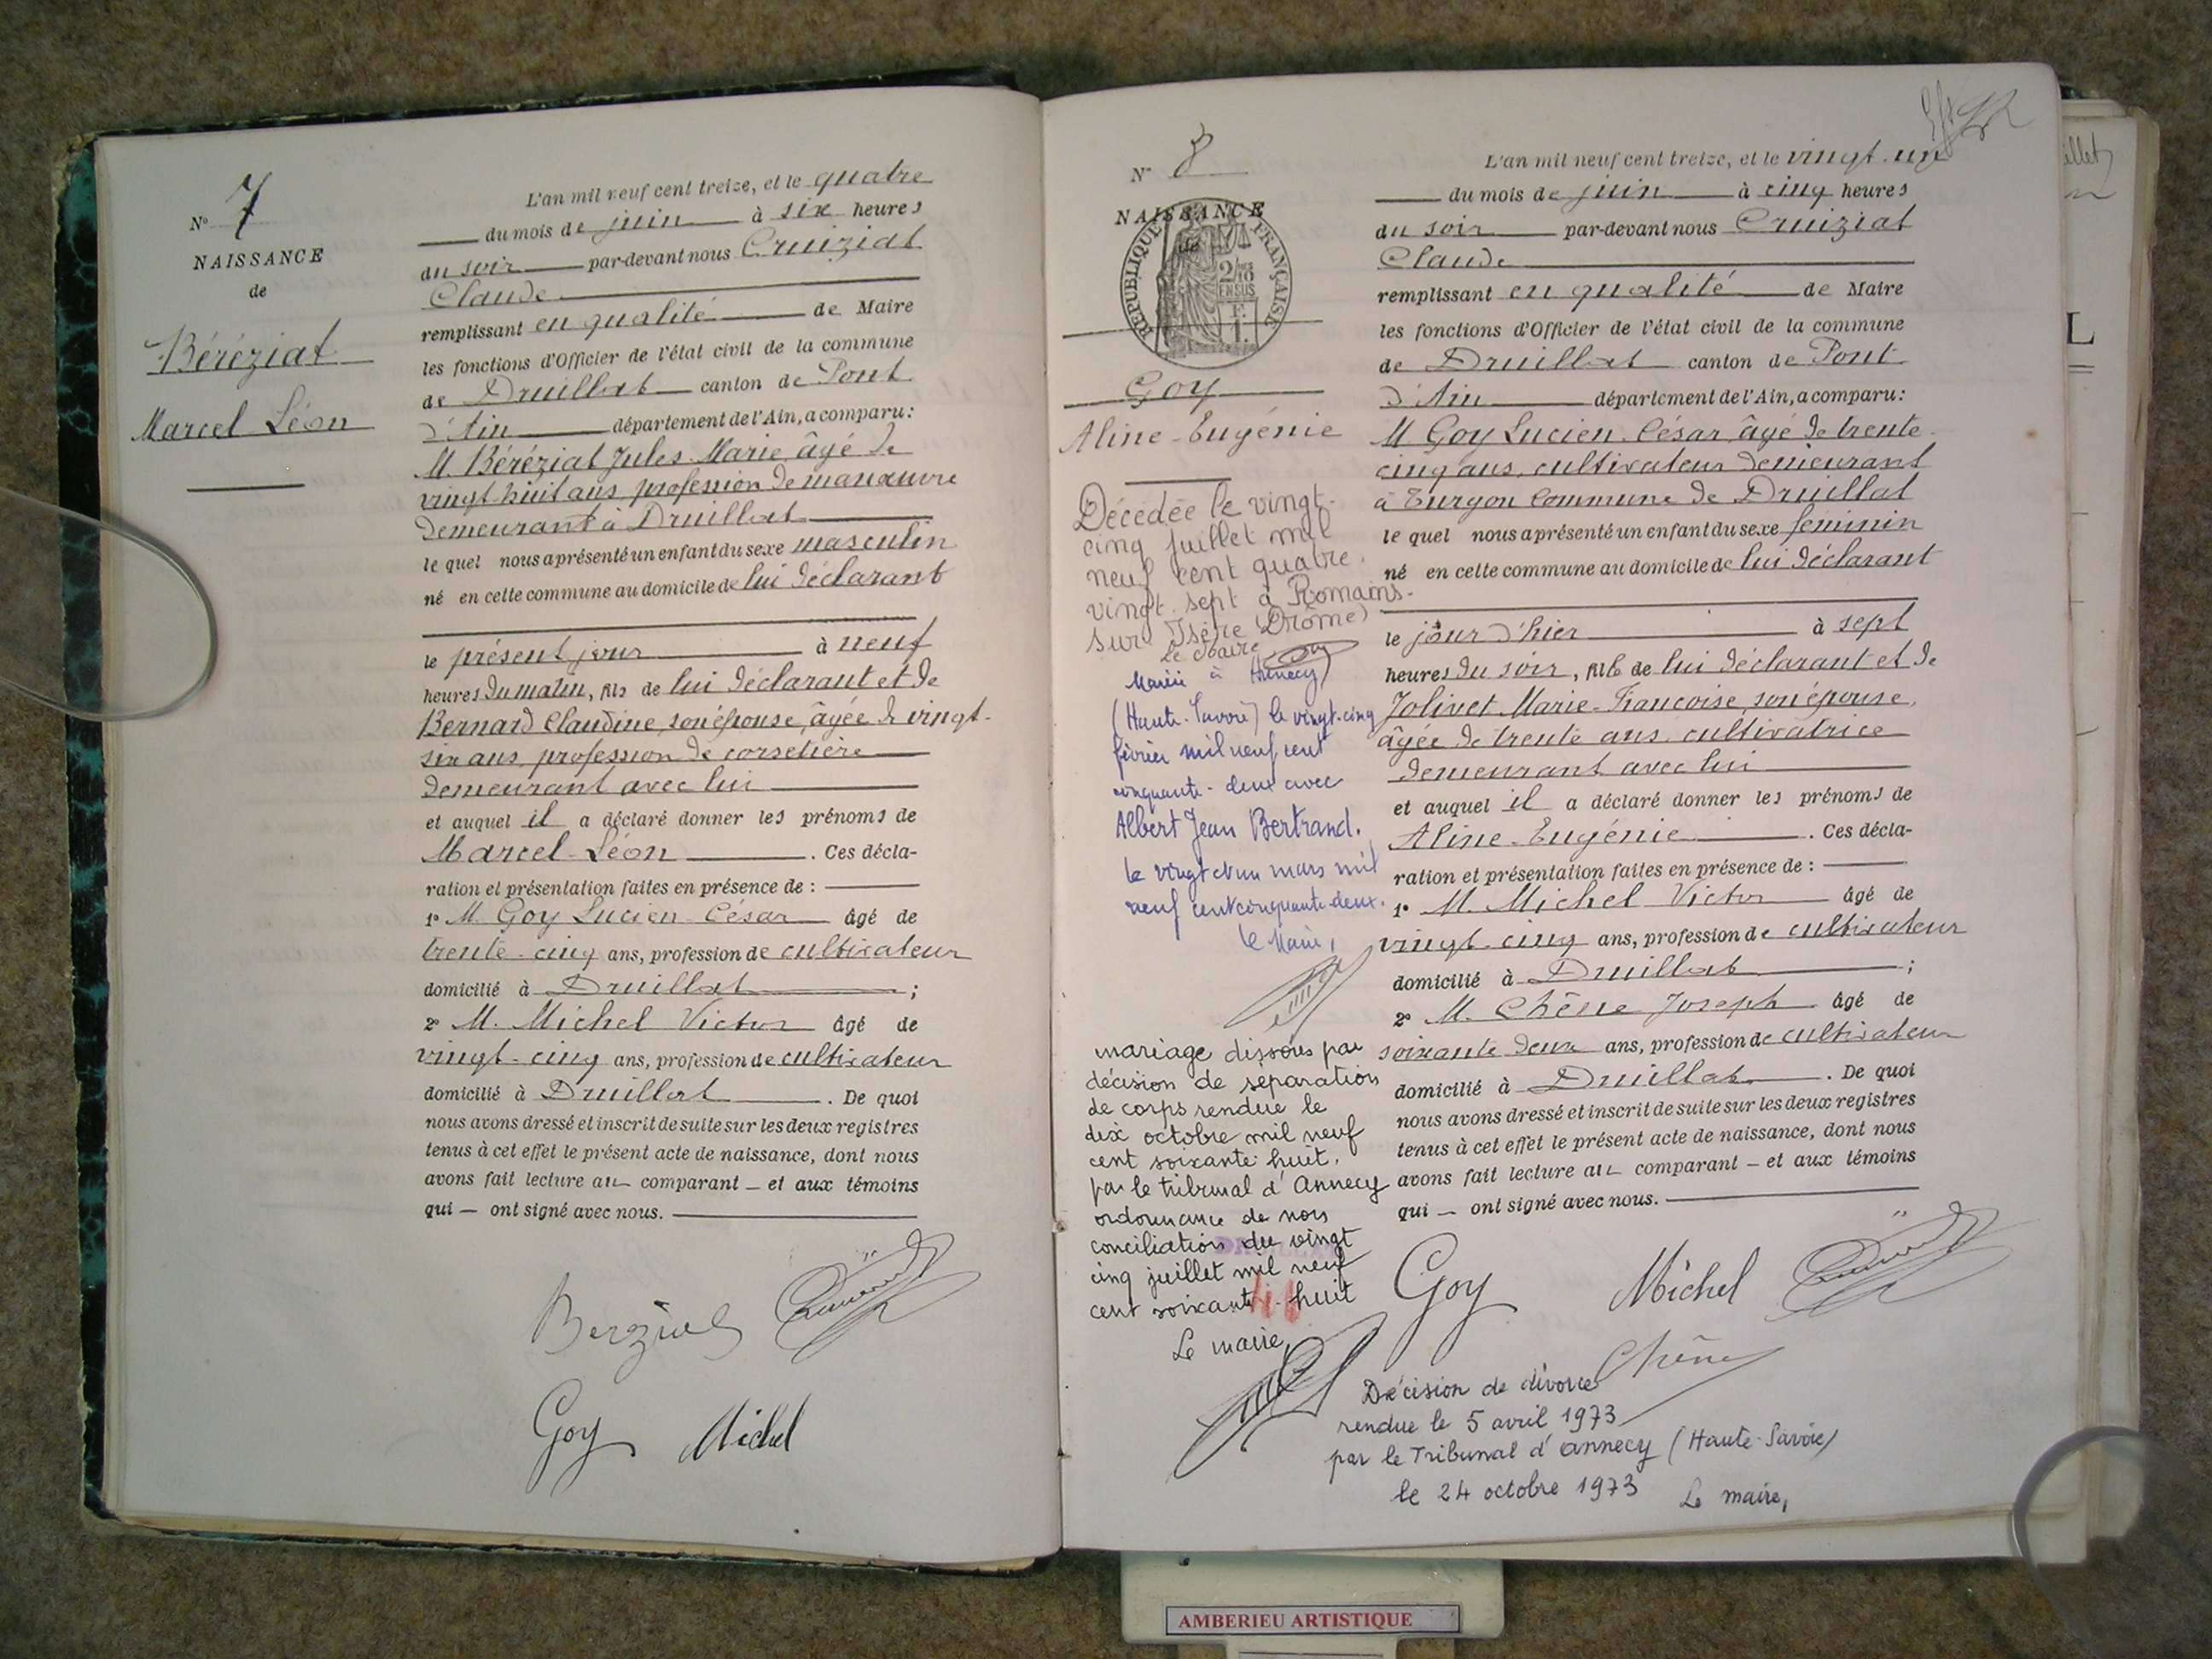 N° 7
NAISSANCE
de
Béréziat
Marcel Léon
L'an mil neuf cent treize, et le quatre
du mois de juin à six heures
du soir par-devant nous Cruiziat
Claude
remplissant en qualité de Maire
les fonctions d'Officier de l'état civil de la commune
de Druillat canton de Pont
d'Ain département de l'Ain, a comparu:
M. Béréziat Jules Marie, âgé de
vingt-huit ans, profession de manœuvre
demeurant à Druillat
le quel nous a présenté un enfant du sexe masculin
né en cette commune au domicile de lui déclarant
le présent jour à neuf
heures du matin, fils de lui déclarant et de
Bernard Claudine, son épouse, âgée de vingt-
six ans, profession de corsetière
demeurant avec lui
et auquel il a déclaré donner les prénoms de
Marcel-Léon . Ces décla-
ration et présentation faites en présence de :
1° M. Goy Lucien-César âgé de
trente-cinq ans, profession de cultivateur
domicilié à Druillat ;
2° M. Michel Victor âgé de
vingt-cinq ans, profession de cultivateur
domicilié à Druillat . De quoi
nous avons dressé et inscrit de suite sur les deux registres
tenus à cet effet le présent acte de naissance, dont nous
avons fait lecture au comparant – et aux témoins
qui – ont signé avec nous.
Goy Michel
N° 8
NAISSANCE
de
REPUBLIQUE FRANÇAISE
2/10 EN SUS
Goy
Aline-Eugénie
Décédée le vingt-
cinq juillet mil
neuf cent quatre-
vingt-sept à Romans-
sur Isère (Drôme)
Le Maire
Mariée à Annecy
(Haute-Savoie) le vingt-cinq
février mil neuf cent
cinquante-deux avec
Albert Jean Bertrand.
le vingt et un mars mil
neuf cent cinquante deux.
le Maire,
mariage dissous par
décision de séparation
de corps rendue le
dix octobre mil neuf
cent soixante huit.
par le tribunal d'Annecy
ordonnance de non
conciliation du vingt
cinq juillet mil neuf
cent soixante-huit
Le maire,
L'an mil neuf cent treize, et le vingt-un
du mois de juin à cinq heures
du soir par-devant nous Cruiziat
Claude
remplissant en qualité de Maire
les fonctions d'Officier de l'état civil de la commune
de Druillat canton de Pont
d'Ain département de l'Ain, a comparu:
M Goy Lucien-César, âgé de trente-
cinq ans, cultivateur demeurant
à Turgon commune de Druillat
le quel nous a présenté un enfant du sexe feminin
né en cette commune au domicile de lui déclarant
le jour d'hier à sept
heures du soir, fille de lui déclarant et de
Jolivet Marie-Francoise, son épouse,
âgée de trente ans, cultivatrice
demeurant avec lui
et auquel il a déclaré donner les prénoms de
Aline-Eugénie . Ces décla-
ration et présentation faites en présence de :
1° M. Michel Victor âgé de
vingt-cinq ans, profession de cultivateur
domicilié à Druillat ;
2° M. Chêne Joseph âgé de
soixante deux ans, profession de cultivateur
domicilié à Druillat . De quoi
nous avons dressé et inscrit de suite sur les deux registres
tenus à cet effet le présent acte de naissance, dont nous
avons fait lecture au comparant – et aux témoins
qui – ont signé avec nous.
Goy Michel
Chêne
Décision de divorce
rendue le 5 avril 1973
par le Tribunal d'Annecy (Haute-Savoie)
le 24 octobre 1973 Le maire,
AMBERIEU ARTISTIQUE